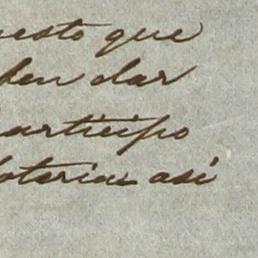 uesto que
den dar
participo
loterias asi